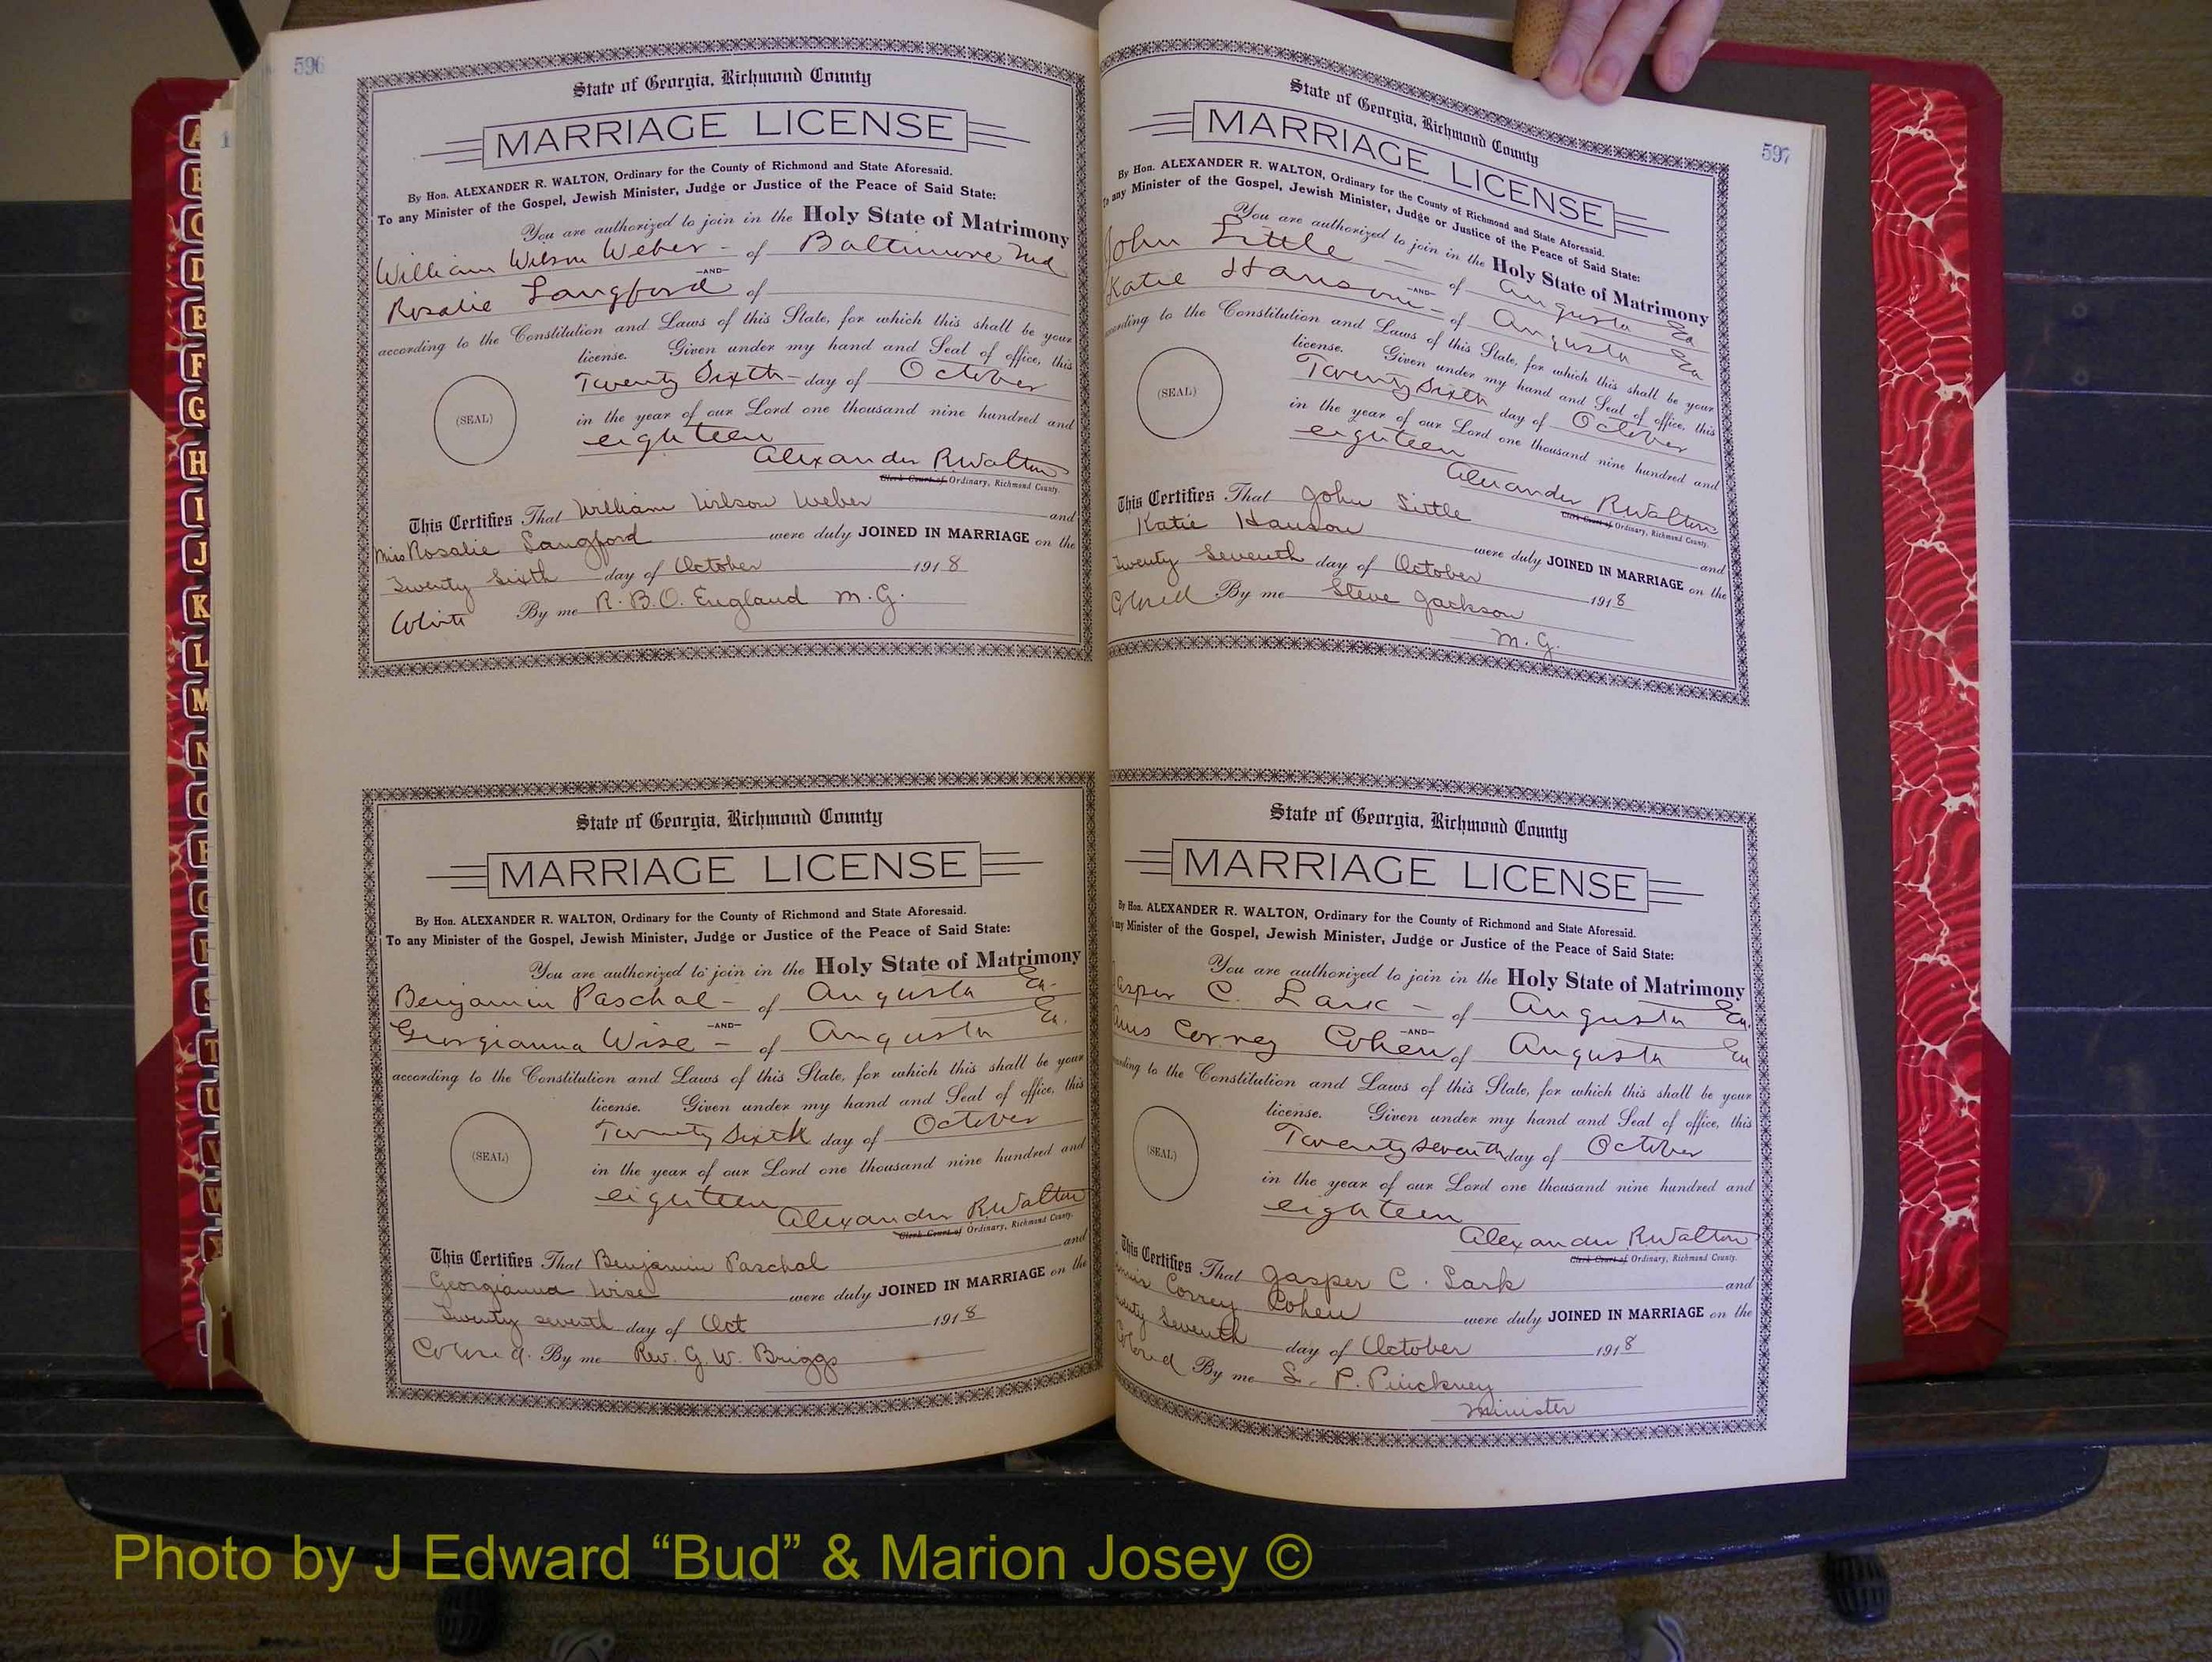 596
State of Georgia, Richmond County
MARRIAGE LICENSE
By Hon. ALEXANDER R. WALTON, Ordinary for the County of Richmond and State Aforesaid.
To any Minister of the Gospel, Jewish Minister, Judge or Justice of the Peace of Said State:
You are authorized to join in the Holy State of Matrimony
William Wilson Weber - of Baltimore Md
-AND-
Rosalie Langford of
according to the Constitution and Laws of this State, for which this shall be your
license. Given under my hand and Seal of office, this
Twenty Sixth - day of October
(SEAL)
in the year of our Lord one thousand nine hundred and
eighteen
Alexander R Walton
Clerk Court of Ordinary, Richmond County.
This Certifies That William Wilson Weber and
Miss Rosalie Langford were duly JOINED IN MARRIAGE on the
Twenty Sixth day of October 1918
White By me R. B. O. England M. G.
State of Georgia, Richmond County
MARRIAGE LICENSE
By Hon. ALEXANDER R. WALTON, Ordinary for the County of Richmond and State Aforesaid.
To any Minister of the Gospel, Jewish Minister, Judge or Justice of the Peace of Said State:
You are authorized to join in the Holy State of Matrimony
Benjamin Paschal - of Augusta Ga.
-AND-
Georgianna Wise - of Augusta Ga.
according to the Constitution and Laws of this State, for which this shall be your
license. Given under my hand and Seal of office, this
Twenty Sixth day of October
(SEAL)
in the year of our Lord one thousand nine hundred and
eighteen
Alexander R Walton
Clerk Court of Ordinary, Richmond County.
This Certifies That Benjamin Paschal and
Georgianna Wise were duly JOINED IN MARRIAGE on the
Twenty seventh day of Oct 1918
Colored. By me Rev. G. W. Briggs
597
State of Georgia, Richmond County
MARRIAGE LICENSE
By Hon. ALEXANDER R. WALTON, Ordinary for the County of Richmond and State Aforesaid.
To any Minister of the Gospel, Jewish Minister, Judge or Justice of the Peace of Said State:
You are authorized to join in the Holy State of Matrimony
John Little - of Augusta Ga
-AND-
Katie Hanson - of Augusta Ga
according to the Constitution and Laws of this State, for which this shall be your
license. Given under my hand and Seal of office, this
Twenty Sixth day of October
(SEAL)
in the year of our Lord one thousand nine hundred and
eighteen
Alexander R Walton
Clerk Court of Ordinary, Richmond County.
This Certifies That John Little and
Katie Hanson were duly JOINED IN MARRIAGE on the
Twenty Seventh day of October 1918
Colored By me Steve Jackson
M. G.
State of Georgia, Richmond County
MARRIAGE LICENSE
By Hon. ALEXANDER R. WALTON, Ordinary for the County of Richmond and State Aforesaid.
any Minister of the Gospel, Jewish Minister, Judge or Justice of the Peace of Said State:
You are authorized to join in the Holy State of Matrimony
Jasper C. Lark - of Augusta Ga.
-AND-
Correy Cohen of Augusta Ga
according to the Constitution and Laws of this State, for which this shall be your
license. Given under my hand and Seal of office, this
Twenty Seventh day of October
(SEAL)
in the year of our Lord one thousand nine hundred and
eighteen
Alexander R Walton
Clerk Court of Ordinary, Richmond County.
This Certifies That Jasper C. Lark and
Correy Cohen were duly JOINED IN MARRIAGE on the
Twenty Seventh day of October 1918
Colored By me S. P. Pinckney
Minister
A
B
C
D
E
F
G
H
I
J
K
L
M
N
O
P
Q
R
S
T
U
V
W
Photo by J Edward “Bud” & Marion Josey ©